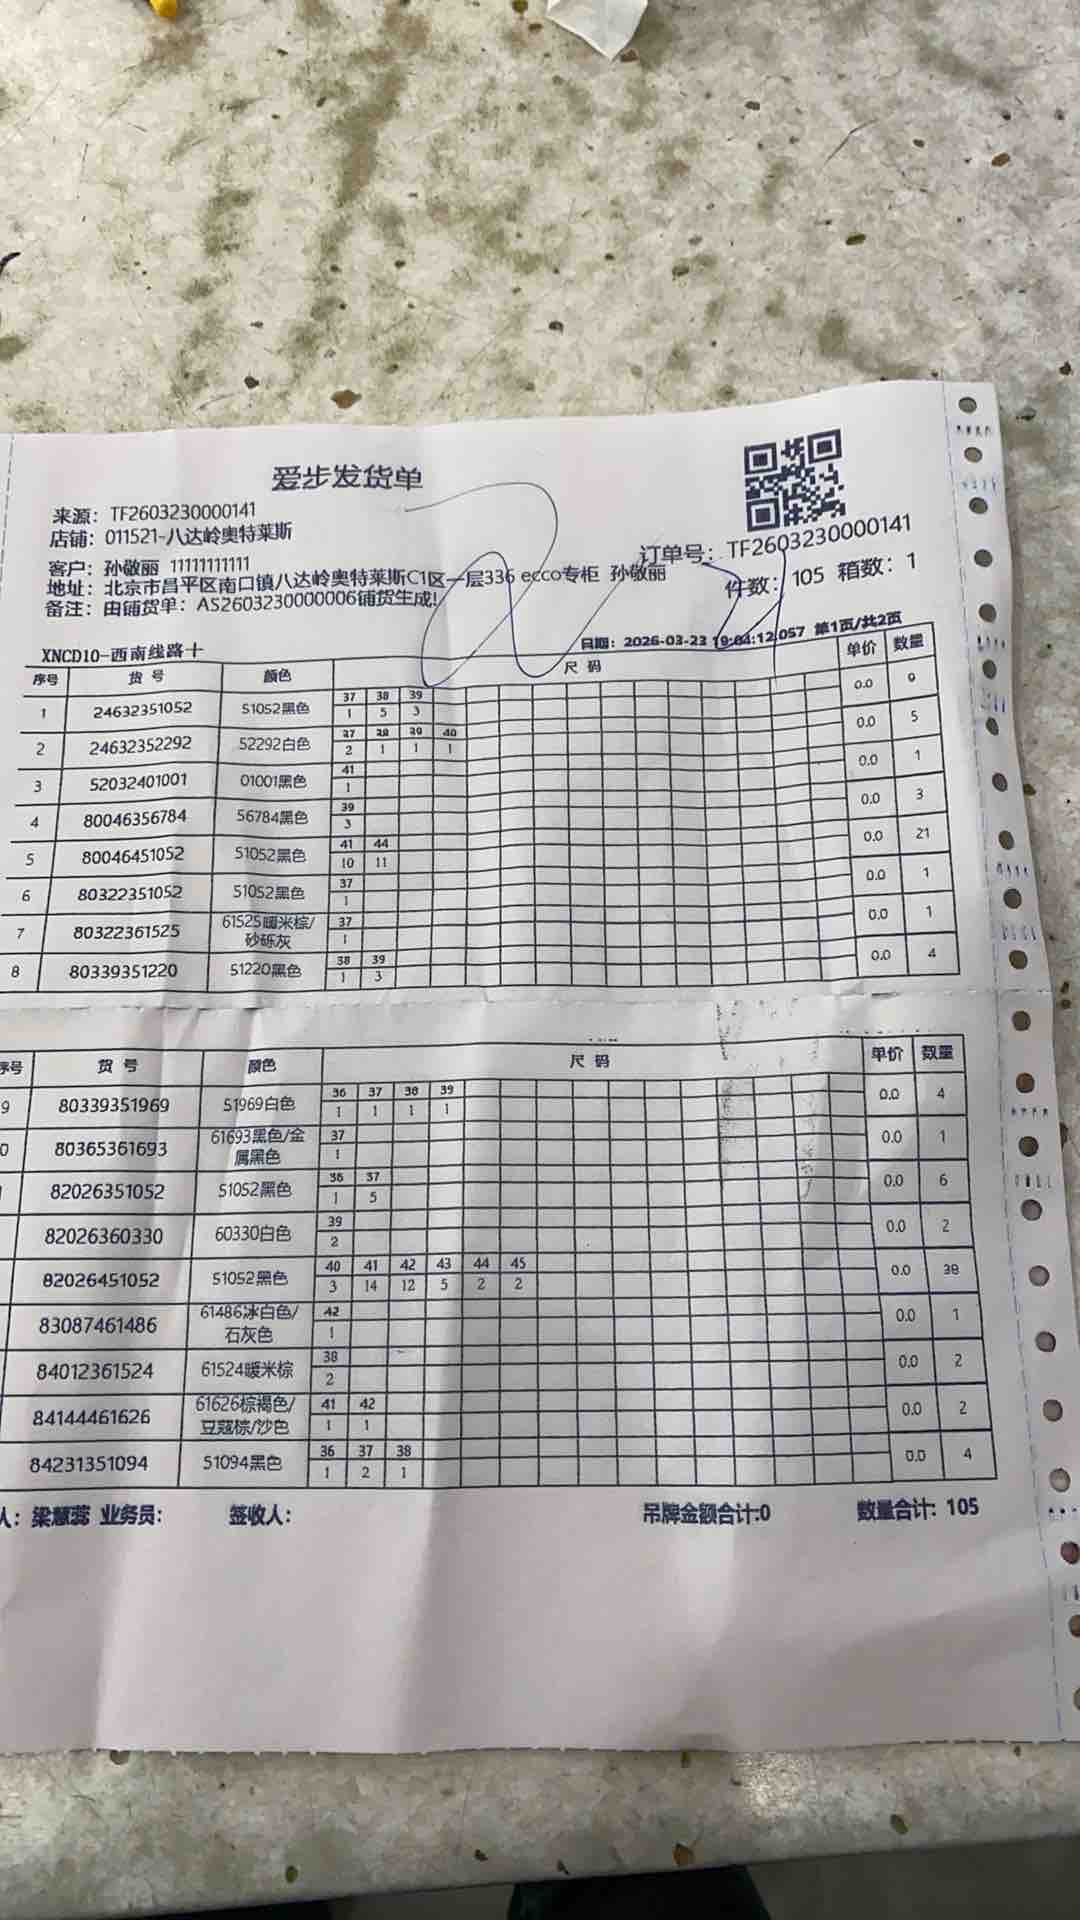 爱步发货单
来源：TF2603230000141
店铺：011521-八达岭奥特莱斯
订单号：TF2603230000141
客户：孙敬丽 11111111111
件数：105 箱数：1
地址：北京市昌平区南口镇八达岭奥特莱斯C1区一层336 ecco专柜 孙敬丽
备注：由铺货单：AS2603230000006铺货生成!
日期：2026-03-23 19:04:12.057 第1页/共2页
XNCD10-西南线路十
序号 货 号 颜色 尺 码 单价 数量
37 38 39
1 24632351052 51052黑色 1 5 3 0.0 9
37 38 39 40
2 24632352292 52292白色 2 1 1 1 0.0 5
41
3 52032401001 01001黑色 1 0.0 1
39
4 80046356784 56784黑色 3 0.0 3
41 44
5 80046451052 51052黑色 10 11 0.0 21
37
6 80322351052 51052黑色 1 0.0 1
37
7 80322361525 61525暖米棕/砂砾灰 1 0.0 1
38 39
8 80339351220 51220黑色 1 3 0.0 4
序号 货 号 颜色 尺 码 单价 数量
36 37 38 39
9 80339351969 51969白色 1 1 1 1 0.0 4
37
0 80365361693 61693黑色/金属黑色 1 0.0 1
36 37
82026351052 51052黑色 1 5 0.0 6
39
82026360330 60330白色 2 0.0 2
40 41 42 43 44 45
82026451052 51052黑色 3 14 12 5 2 2 0.0 38
42
83087461486 61486冰白色/石灰色 1 0.0 1
38
84012361524 61524暖米棕 2 0.0 2
41 42
84144461626 61626棕褐色/豆蔻棕/沙色 1 1 0.0 2
36 37 38
84231351094 51094黑色 1 2 1 0.0 4
人：梁慧蕊 业务员： 签收人： 吊牌金额合计:0 数量合计：105